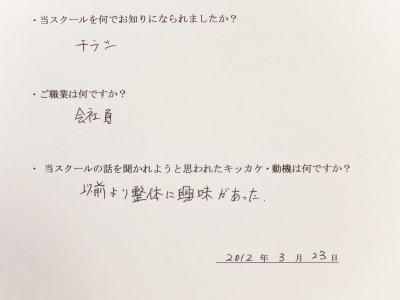 ・当スクールを何でお知りになられましたか？
チラシ
・ご職業は何ですか？
会社員
・ 当スクールの話を聞かれようと思われたキッカケ・動機は何ですか？
以前より整体に興味があった.
2012 年 3 月 23 日